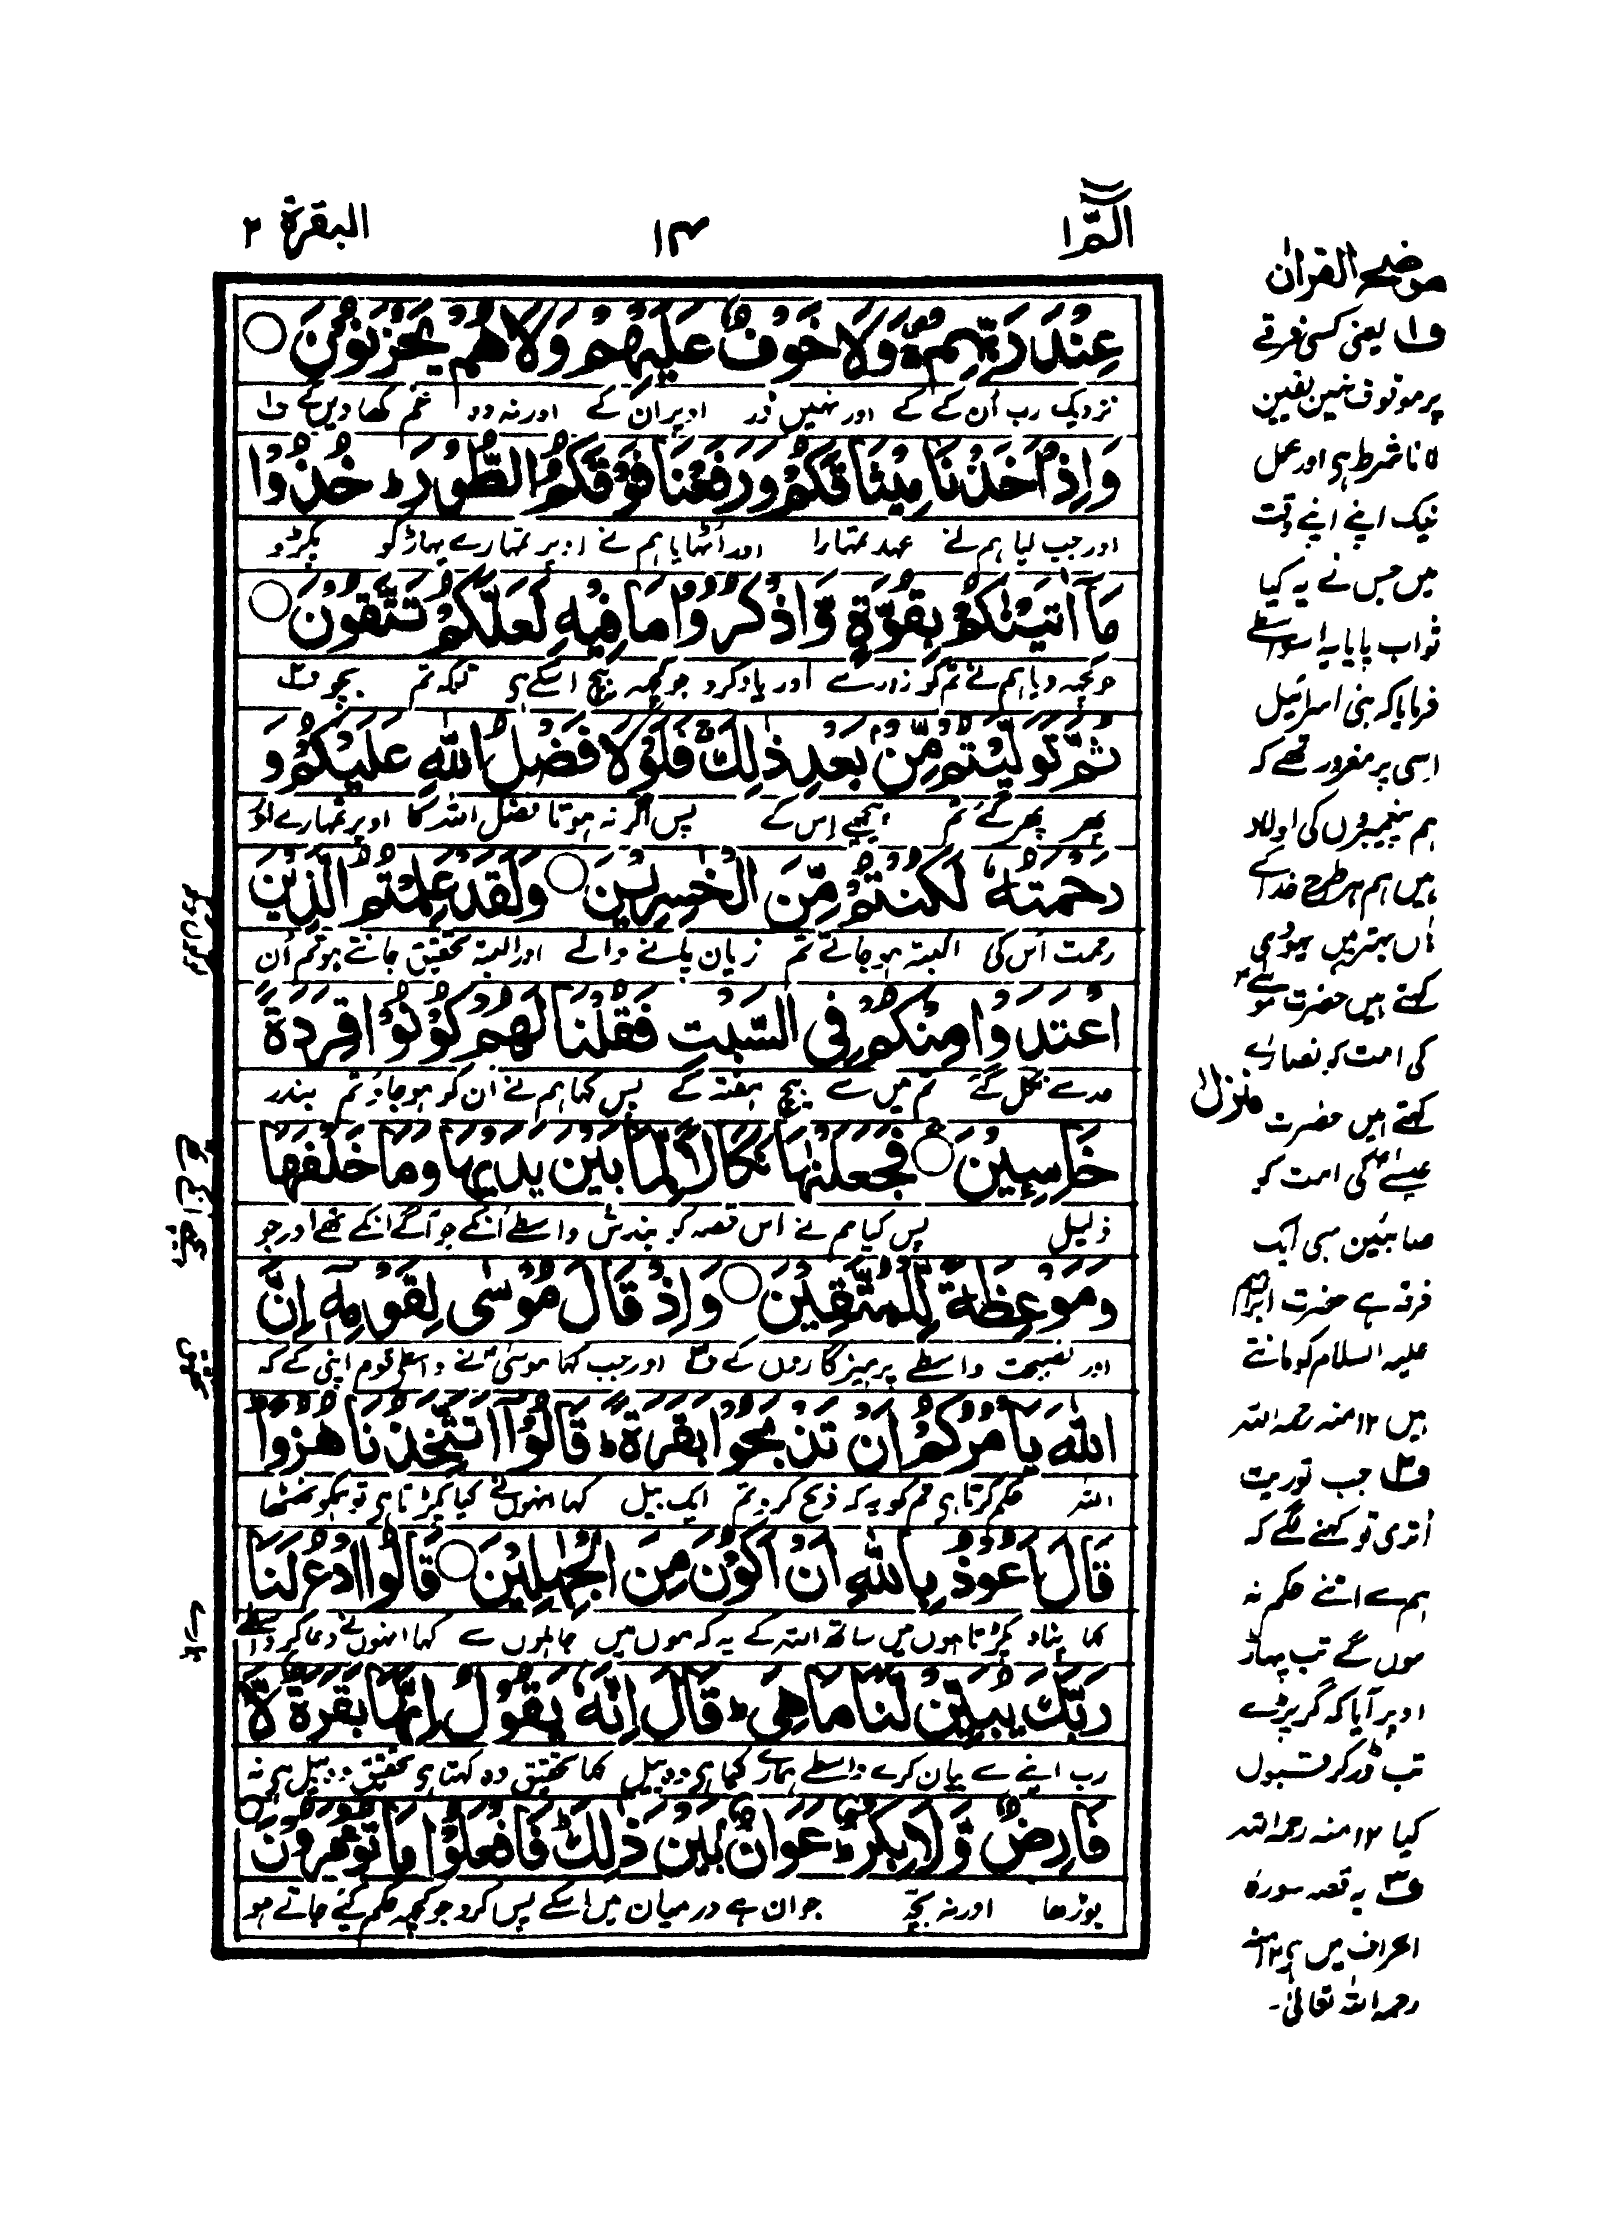 الٓمّٓ ١
١٤
البقرة ٢
عِنْدَ رَبِّهِمْ وَلَا خَوْفٌ عَلَيْهِمْ وَلَا هُمْ يَحْزَنُوْنَ ○
نزدیک رب اُن کے کے اور نہیں ڈر اوپر ان کے اور نہ وہ غم کھاویں گے ف۱
وَاِذْ اَخَذْنَا مِيْثَاقَكُمْ وَرَفَعْنَا فَوْقَكُمُ الطُّوْرَ ؕ خُذُوْا
اور جب لیا ہم نے عہد تمہارا اور اُٹھایا ہم نے اوپر تمہارے پہاڑ کو پکڑو
مَآ اٰتَيْنٰكُمْ بِقُوَّةٍ وَّاذْكُرُوْا مَا فِيْهِ لَعَلَّكُمْ تَتَّقُوْنَ ○
جو کچھ دیا ہم نے تم کو زور سے اور یاد کرو جو کچھ بیچ اسکے ہی تم بچو ف۲
ثُمَّ تَوَلَّيْتُمْ مِّنْۢ بَعْدِ ذٰلِكَ ۚ فَلَوْلَا فَضْلُ اللّٰهِ عَلَيْكُمْ وَ
پھر پھر گئے تم پیچھے اِس کے پس اگر نہ ہوتا فضل اللہ کا اوپر تمہارے اور
رَحْمَتُهٗ لَكُنْتُمْ مِّنَ الْخٰسِرِيْنَ ○ وَلَقَدْ عَلِمْتُمُ الَّذِيْنَ
رحمت اُس کی البتہ ہو جاتے تم زیان پانے والے اور البتہ تحقیق جانتے ہو تم اُن
اعْتَدَوْا مِنْكُمْ فِى السَّبْتِ فَقُلْنَا لَهُمْ كُوْنُوْا قِرَدَةً
حد سے نکل گئے تم میں سے بیچ ہفتہ کے پس کہا ہم نے ان کو ہو جاؤ تم بندر
خَاسِـِٕيْنَ ○ فَجَعَلْنٰهَا نَكَالًا لِّمَا بَيْنَ يَدَيْهَا وَمَا خَلْفَهَا
ذلیل پس کیا ہم نے اس قصہ کو بندش واسطے اُنکے جو آگے انکے تھے اور جو
وَمَوْعِظَةً لِّلْمُتَّقِيْنَ ○ وَاِذْ قَالَ مُوْسٰى لِقَوْمِهٖٓ اِنَّ
اور نصیحت واسطے پرہیزگاروں کے ف۳ اور جب کہا موسیٰ نے واسطے قوم اپنی کے کہ
اللّٰهَ يَاْمُرُكُمْ اَنْ تَذْبَحُوْا بَقَرَةً ؕ قَالُوْٓا اَتَتَّخِذُنَا هُزُوًا
اللہ حکم کرتا ہی تم کو یہ کہ ذبح کرو تم ایک بیل کہا انہوں نے کیا پکڑتا ہی تو ہمکو ٹھٹھا
قَالَ اَعُوْذُ بِاللّٰهِ اَنْ اَكُوْنَ مِنَ الْجٰهِلِيْنَ ○ قَالُوا ادْعُ لَنَا
کہا پناہ پکڑتا ہوں میں ساتھ اللہ کے یہ کہ ہوں میں جاہلوں سے کہا انہوں نے دعا کر واسطے
رَبَّكَ يُبَيِّنْ لَّنَا مَا هِىَ ؕ قَالَ اِنَّهٗ يَقُوْلُ اِنَّهَا بَقَرَةٌ لَّا
رب اپنے سے بیان کرے واسطے ہمارے کیا ہی وہ بیل کہا تحقیق وہ کہتا ہی تحقیق وہ بیل ہی نہ
فَارِضٌ وَّلَا بِكْرٌ ؕ عَوَانٌۢ بَيْنَ ذٰلِكَ ؕ فَافْعَلُوْا مَا تُؤْمَرُوْنَ ○
بوڑھا اور نہ بچّہ جوان ہے درمیان میں اُسکے پس کرو جو کچھ حکم کئے جاتے ہو
موضح القرآن
ف۱ یعنی کسی فرقے
پر موقوف نہیں یقین
لانا شرط ہی اور عمل
نیک اپنے اپنے وقت
میں جس نے یہ کیا
ثواب پایا یہ اسواسطے
فرمایا کہ بنی اسرائیل
اسی پر مغرور تھے کہ
ہم پیغمبروں کی اولاد
ہیں ہم ہر طرح خدا کے
ہاں بہتر ہیں یہودی
کہتے ہیں حضرت موسےٰ
کی امت کو نصاریٰ
کہتے ہیں حضرت
منزل
عیسےٰ کی امت کو
صابئین بھی ایک
فرقہ ہے حضرت ابراہیم
علیہ السلام کو مانتے
ہیں ۱۲ منہ رحمہ اللہ
ف۲ جب توریت
اُتری تو کہنے لگے کہ
ہم سے اتنے حکم نہ
ہوں گے تب پہاڑ
اوپر آیا کہ گر پڑے
تب ڈر کر قبول
کیا ۱۲ منہ رحمہ اللہ
ف۳ یہ قصہ سورہ
اعراف میں ہی ۱۲ منہ
رحمہ اللہ تعالیٰ-